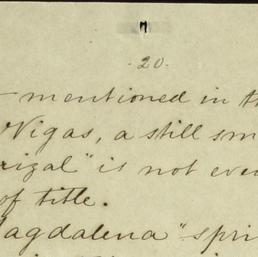 M
20.
mentioned in th
Vigas, a still sm
rizal" is not eve
of title.
agdalena" spri